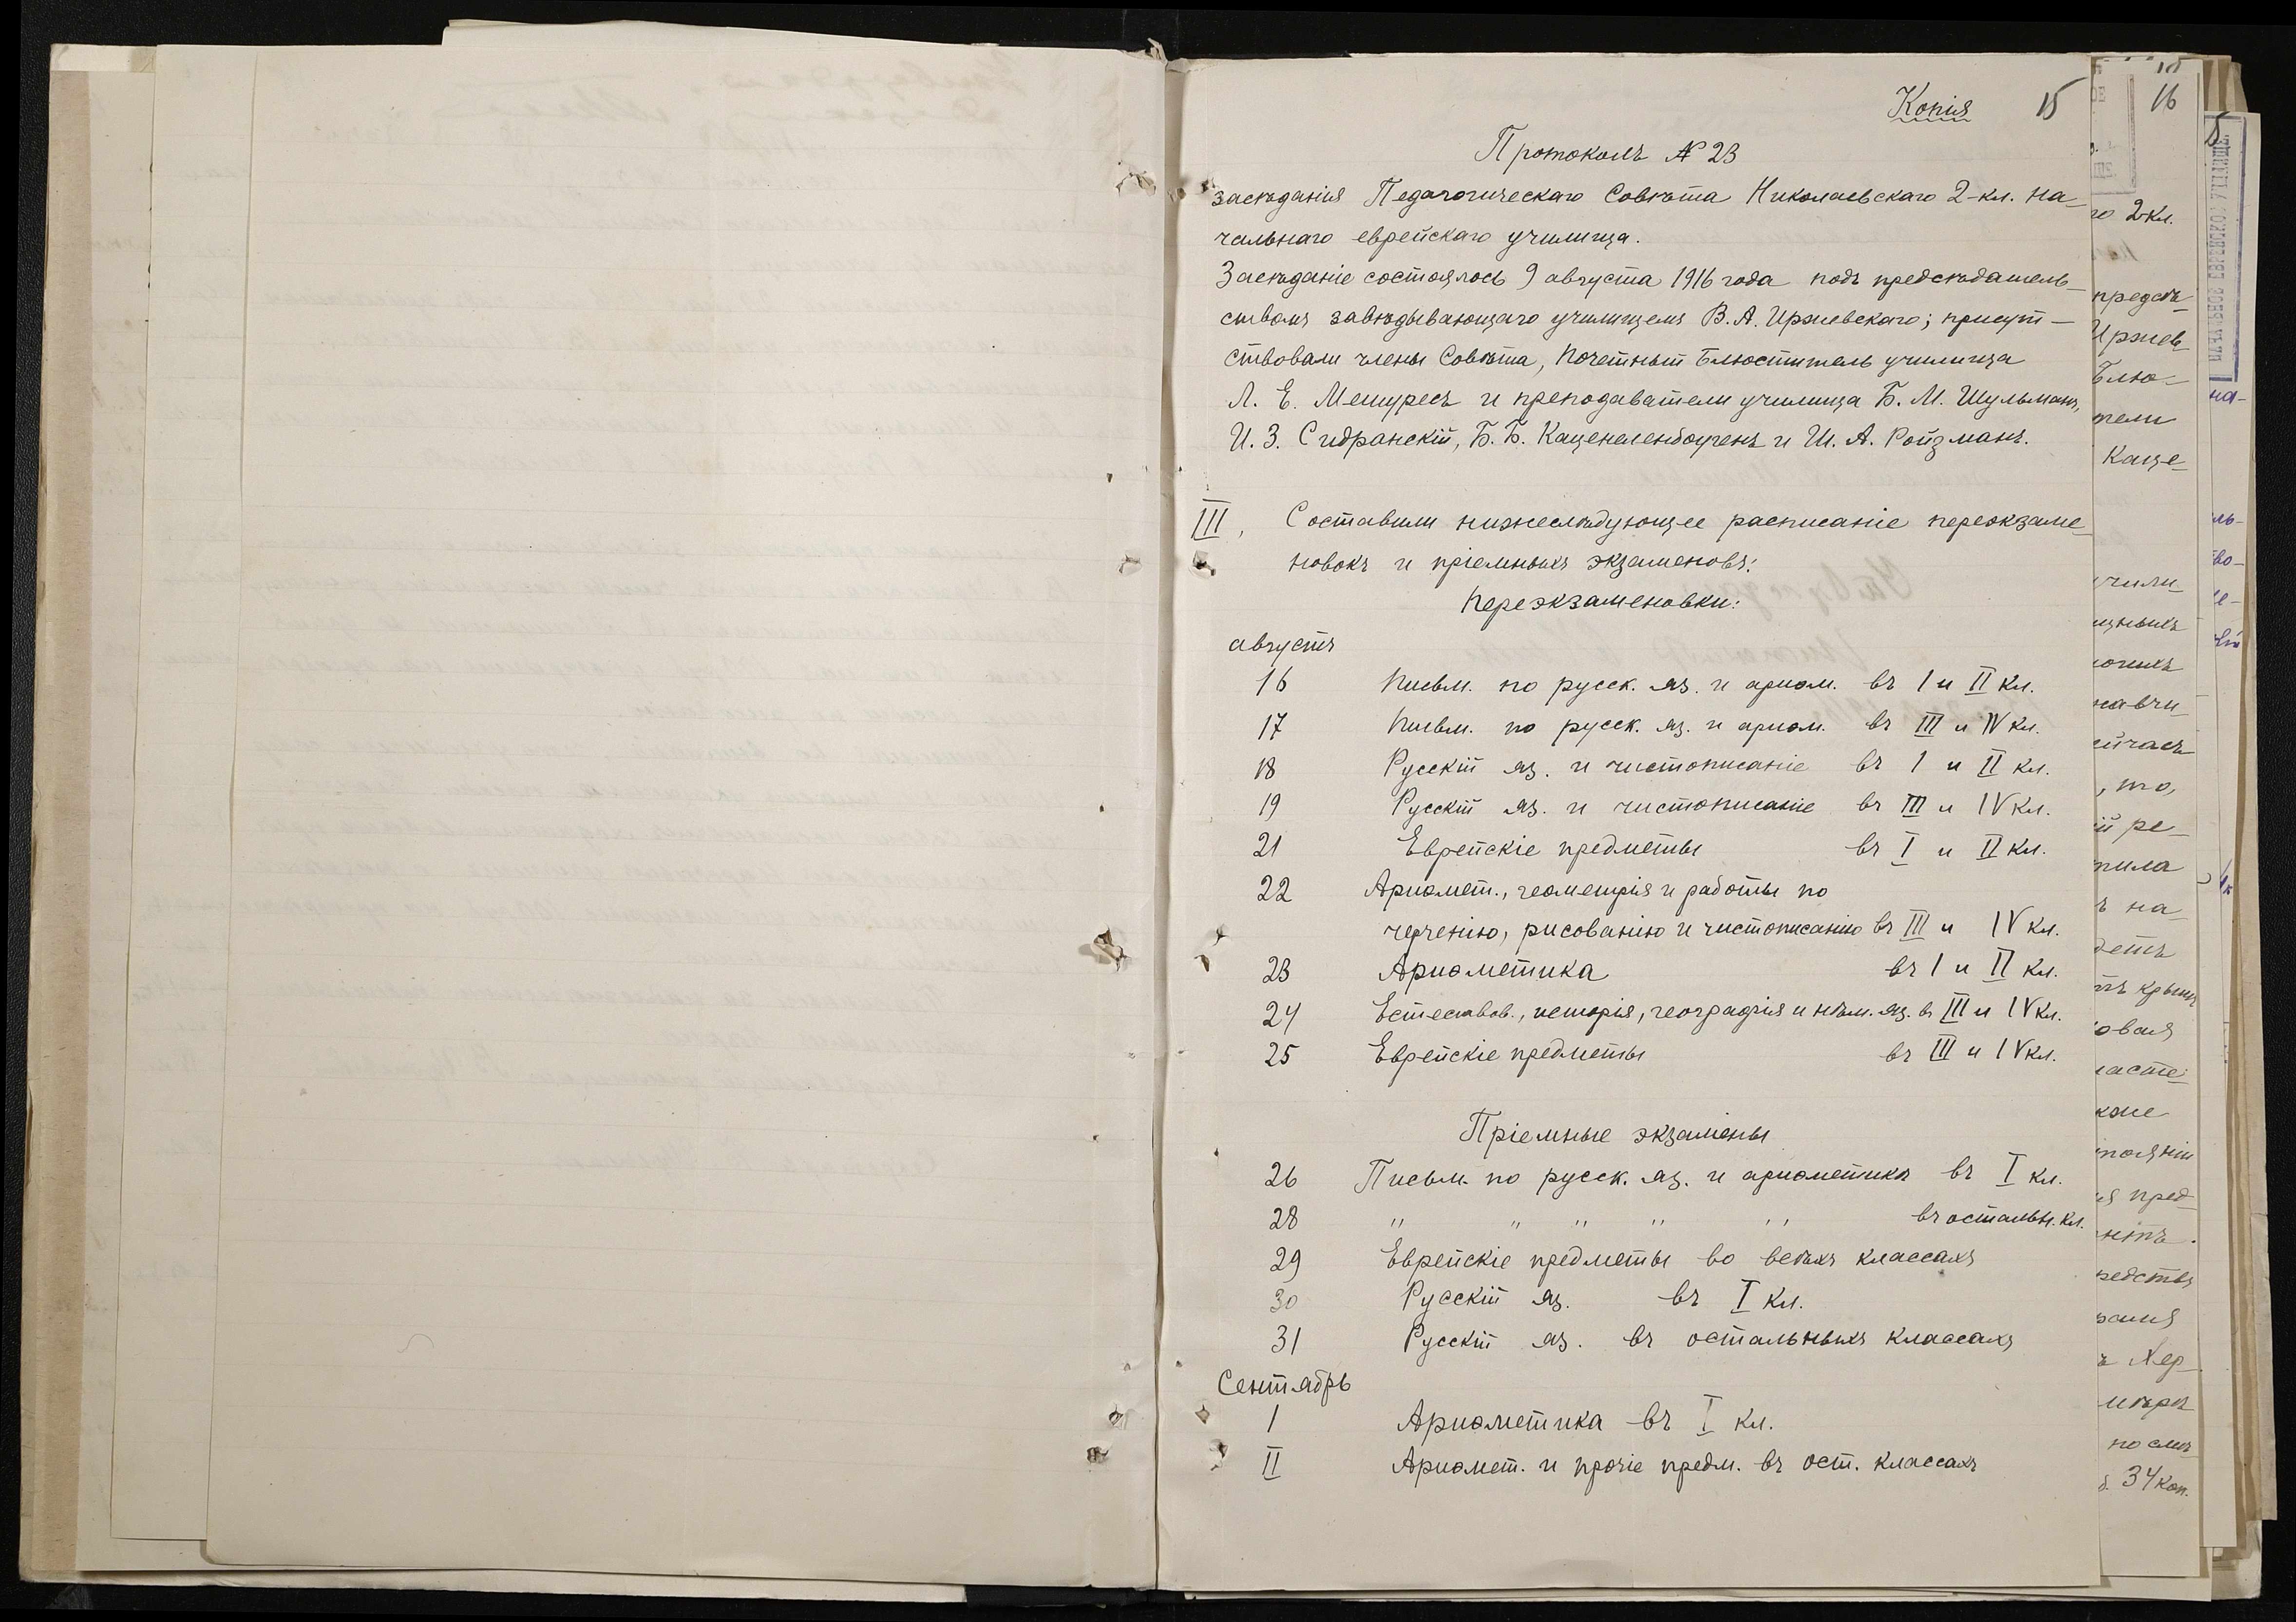 Копія 15
Протоколъ № 23
засѣданія Педагогическаго Совѣта Николаевскаго 2-кл. на-
чальнаго еврейскаго училища.
Засѣданіе состоялось 9 августа 1916 года подъ предсѣдатель-
ствомъ завѣдывающаго училищемъ В. А. Иржевскаго; присут-
ствовали члены Совѣта, почетный блюститель училища
Л. Е. Мешуресъ и преподаватели училища Б. М. Шульманъ,
И. З. Сидранскій, Б. Б. Каценеленбоугенъ и Ш. А. Ройзманъ.
III, Составили нижеслѣдующее расписаніе переэкзаме-
новокъ и пріемныхъ экзаменовъ:
Переэкзаменовки:
августъ
16 Письм. по русск. яз. и ариѳм. въ I и II кл.
17 Письм. по русск. яз. и ариѳм. въ III и IV кл.
18 Русскій яз. и чистописаніе въ I и II кл.
19 Русскій яз. и чистописаніе въ III и IV кл.
21 Еврейскіе предметы въ I и II кл.
22 Ариѳмет., геометрія и работы по
черченію, рисованію и чистописанію въ III и IV кл.
23 Ариѳметика въ I и II кл.
24 Естествов., исторія, географія и нѣм. яз. въ III и IV кл.
25 Еврейскіе предметы въ III и IV кл.
Пріемные экзамены
26 Письм. по русск. яз. и ариѳметикѣ въ I кл.
28 " " " " " въ остальн. кл.
29 Еврейскіе предметы во всѣхъ классахъ
30 Русскій яз. въ I кл.
31 Русскій яз. въ остальныхъ классахъ
Сентябрь
1 Ариѳметика въ I кл.
II Ариѳмет. и прочіе предм. въ ост. классахъ
16
го 2 кл.
предсѣ-
Иржев
Блю-
тели
Каце-
чили-
навчи-
, то,
ій ре-
пила
ъ на-
ъ Хер-
34 коп.